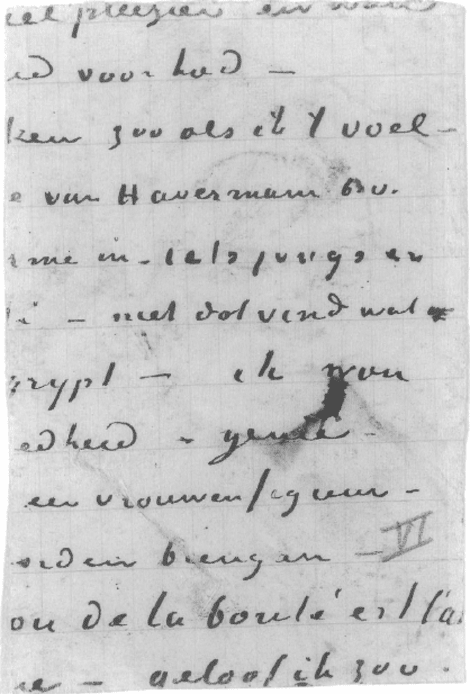 eel plezier en wan
ed voor had —
ken zoo als ik 't voel —
e van Haverman Bv.
me in — iets jongs en
— niet dol vind wat
grypt — ik wou
edheid —
een vrouwenfiguur —
orden brengen — VI
ou de la bonté est l'a
ne — geloof ik zoo.